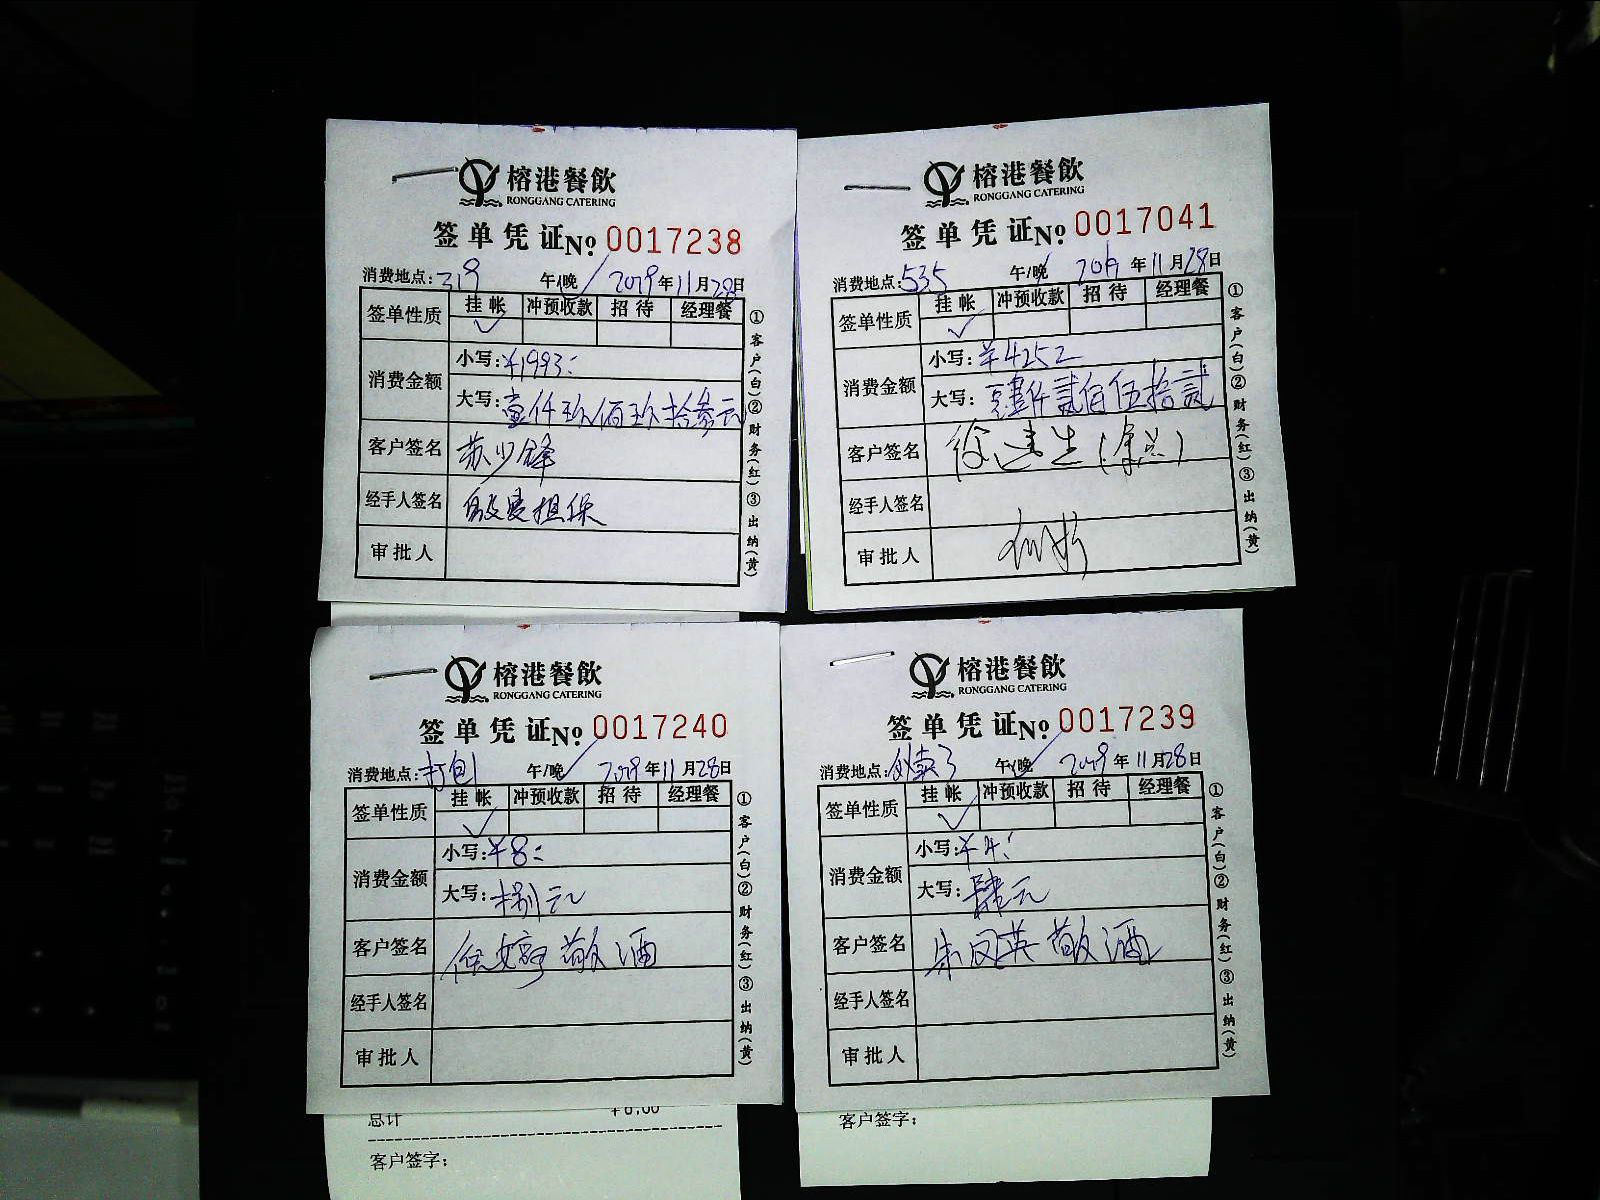 榕港餐飲
RONGGANG CATERING
签单凭证No. 0017238
消费地点: 319 午/晚 2019年11月28日
签单性质 挂帐 冲预收款 招待 经理餐
消费金额 小写: ¥1993:
大写: 壹仟玖佰玖拾叁元
客户签名 苏少锋
经手人签名 殷曼担保
审批人
①客户(白)②财务(红)③出纳(黄)
榕港餐飲
RONGGANG CATERING
签单凭证No. 0017041
消费地点: 535 午/晚 2019年11月28日
签单性质 挂帐 冲预收款 招待 经理餐
消费金额 小写: ¥4252
大写: 肆仟贰佰伍拾贰
客户签名 徐建生
经手人签名
审批人
①客户(白)②财务(红)③出纳(黄)
榕港餐飲
RONGGANG CATERING
签单凭证No. 0017240
消费地点: 打包 午/晚 2019年11月28日
签单性质 挂帐 冲预收款 招待 经理餐
消费金额 小写: ¥8:
大写: 捌元
客户签名 侯婷敬酒
经手人签名
审批人
①客户(白)②财务(红)③出纳(黄)
总计 ¥6.00
客户签字:
榕港餐飲
RONGGANG CATERING
签单凭证No. 0017239
消费地点: 外卖3 午/晚 2019年11月28日
签单性质 挂帐 冲预收款 招待 经理餐
消费金额 小写: ¥4:
大写: 肆元
客户签名 朱凤英敬酒
经手人签名
审批人
①客户(白)②财务(红)③出纳(黄)
客户签字: